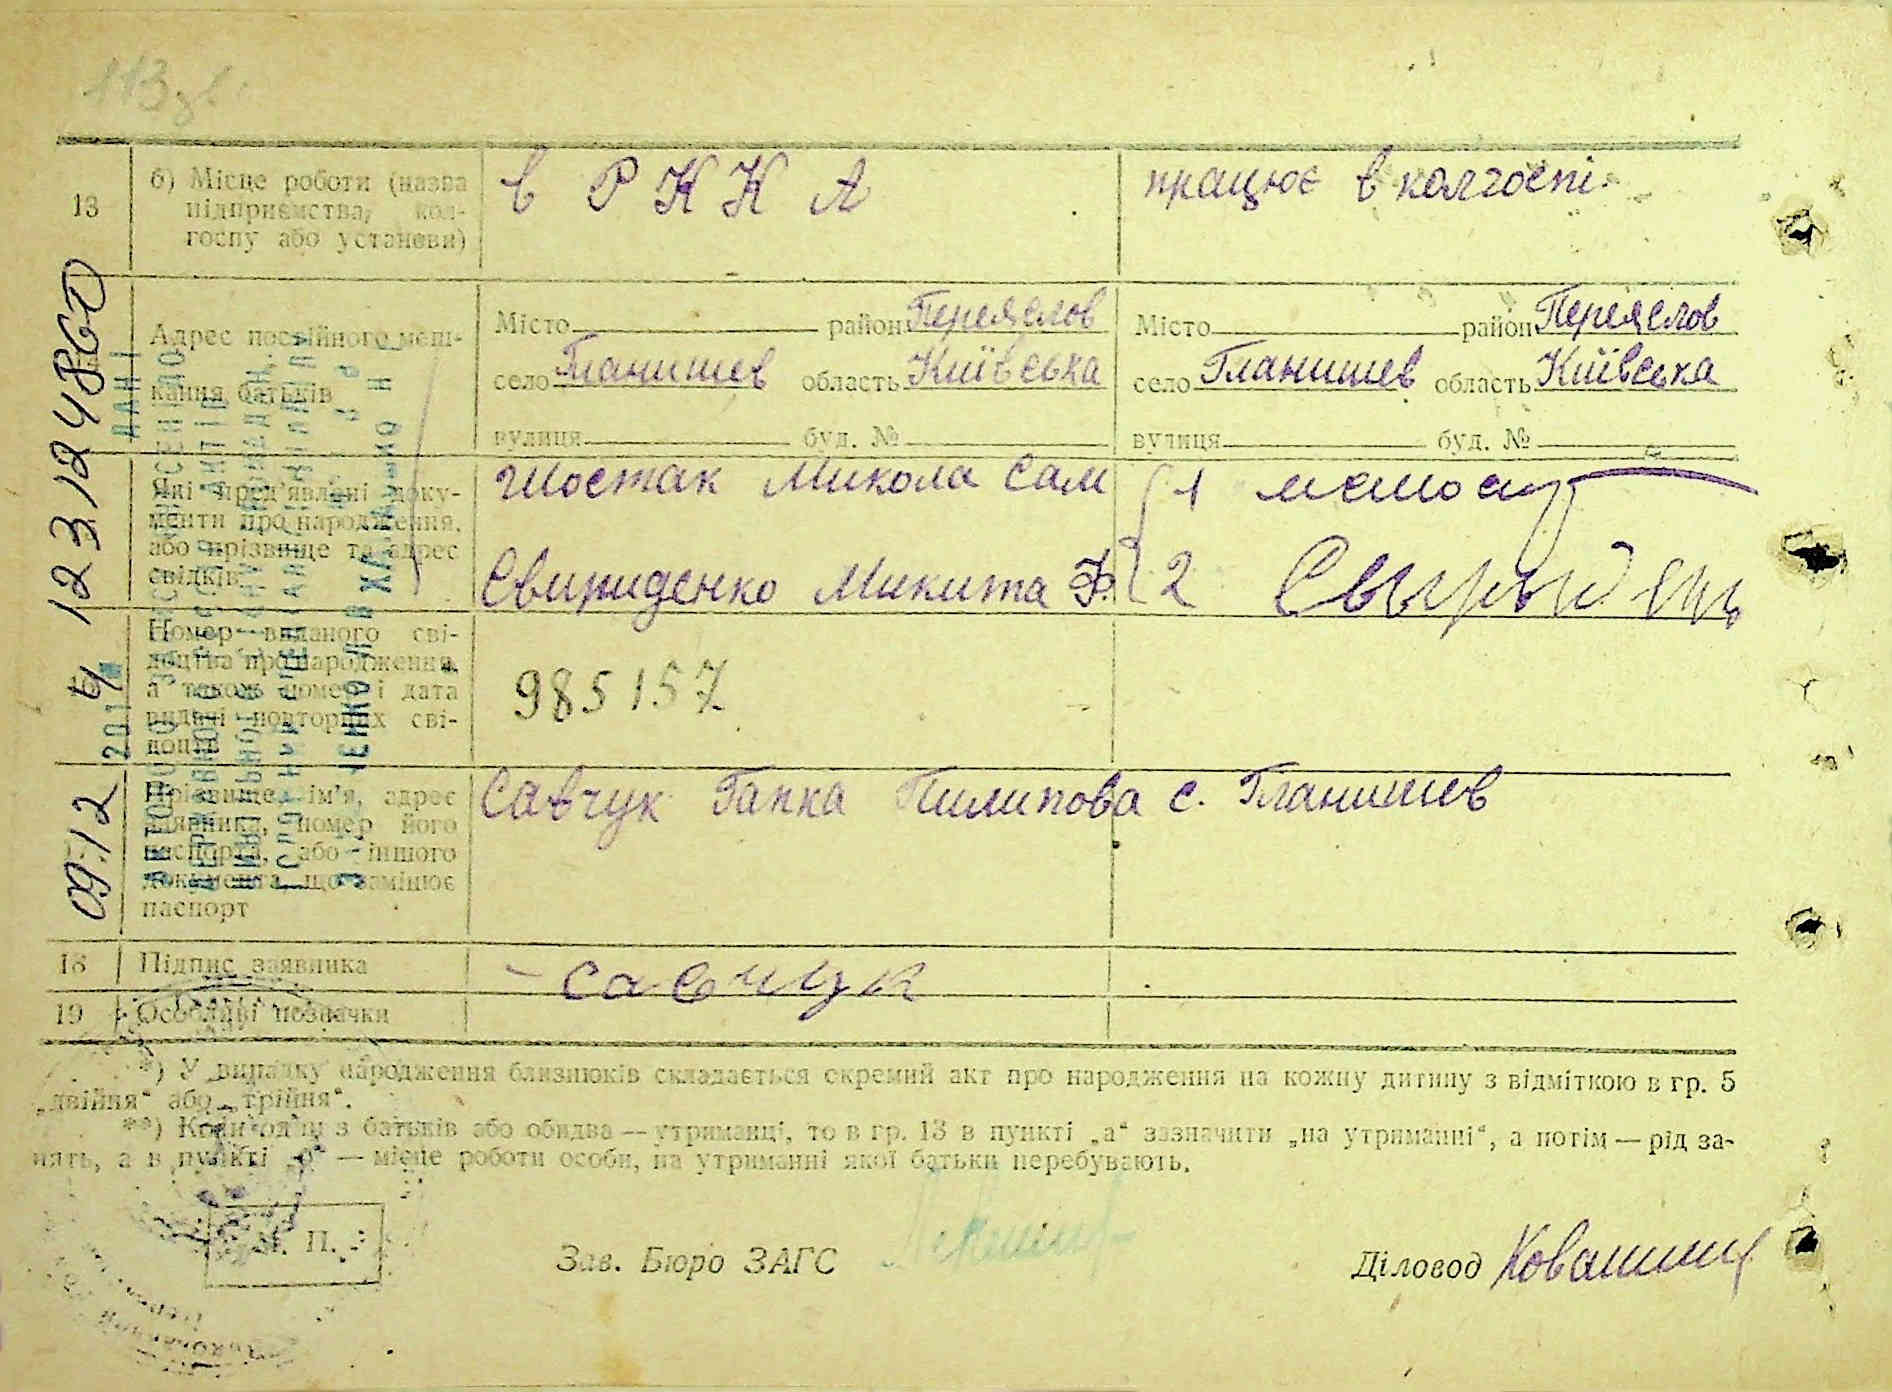 113 зв.
13
б) Місце роботи (назва
підприємства, кол-
госпу або установи)
в Р К К А
працює в колгоспі
Адрес постійного меш-
кання батьків
Місто район Переяслов
село Гланишев область Київська
вулиця буд. №
Місто район Переяслов
село Гланишев область Київська
вулиця буд. №
Які пред'явлені доку-
менти про народження,
або прізвище та адрес
свідків
Шостак Микола Сам
Свириденко Микита Ф.
1
2
Номер виданого сві-
доцтва про народження,
а також номер і дата
видачі повторних сві-
доцтв
985157
Прізвище, ім'я, адрес
заявника, номер його
паспорта, або іншого
документа, що замінює
паспорт
Савчук Гапка Пилипова с. Гланишев
18 Підпис заявника
Савчук
19 Особливі позначки
*) У випадку народження близнюків складається окремий акт про народження на кожну дитину з відміткою в гр. 5
„двійня“ або „трійня“.
**) Коли один з батьків або обидва — утриманці, то в гр. 13 в пункті „а“ зазначити „на утриманні“, а потім — рід за-
нять, а в пункті „б“ — місце роботи особи, на утриманні якої батьки перебувають.
М. П.
Зав. Бюро ЗАГС
Діловод
09.12 2014 123.124860